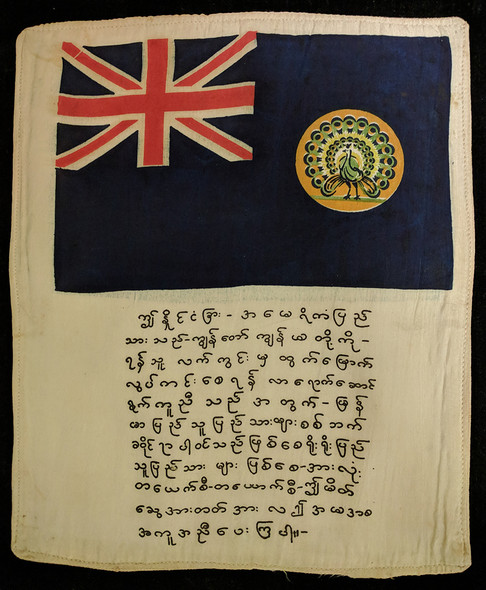 ဤ နိုင်ငံခြား - အမေရိကံပြည်
သား သည်-ကျွန်တော် ကျွန်မတို့ကို -
ရန်သူ့ လက်တွင်း မှ ထွက်မြောက်
လွတ်ကင်းစေရန် လာရောက်ဆောင်
ရွက်ကူညီ သည် အတွက် - မြန်
မာပြည်သူ ပြည်သားများစစ်ဘက်
ပါဝင်သည်ဖြစ်စေရိုးရိုးပြည်
သူပြည်သား များ ဖြစ်စေ-အားလုံး
တယောက်စီ-တယောက်စီ-ဤမိတ်
ဆွေအားတတ်အား
အကူအညီပေးကြပါ။-